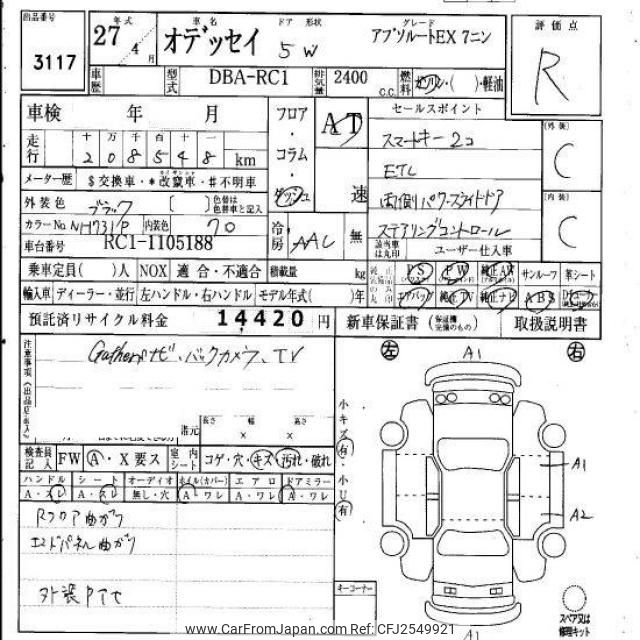 出品番号 年式 車名 ドア 形状 グレード 評価点
3117 27 4月 オデッセイ 5W アブソルートEX 7ニン R
車歴 型式 DBA-RC1 排気量 2400 C.C. 燃料 ガソリン・( )・軽油
車検 年 月 フロア・コラム・ダッシュ AT 速 セールスポイント
走行 十 万 千 百 十 一
2 0 8 5 4 8 km
スマートキー2コ
ETC
両側パワースライドドア
ステアリングコントロール
(外装) C
(内装) C
メーター歴 $交換車・*改竄車・#不明車
外装色 ブラック [ ] 色替は色替車と記入
カラーNo. NH731P 内装色 70 冷房 AAC 無
車台番号 RC1-1105188 該当車は丸印 ユーザー仕入車
乗車定員( )人 NOX 適合・不適合 積載量 kg PS PW 純正AW サンルーフ 革シート
輸入車 ディーラー・並行 左ハンドル・右ハンドル モデル年式( )年 エアバッグ 純正TV 純正ナビ ABS
預託済リサイクル料金 14420円 新車保証書 (保証書完備のもの) 取扱説明書
注意事項(出品店記入) Gathersナビ、バックカメラ、TV
諸元 長さ × 幅 × 高さ
検査員記入 FW A・X要ス 室内シート コゲ・穴・キズ・汚れ・破れ
ハンドル シート オーディオ ホイル(カバー) エアロ ドアミラー
A・スレ A・スレ 無し・穴 A・ワレ A・ワレ A・ワレ
Rフロア曲がり
エンドパネル曲がり
外装Pてて
小キズ(有)・小U(有)
左 A1 右
A1
A2
A1
キーコーナー
スペア又は修理キット
www.CarFromJapan.com Ref: CFJ2549921